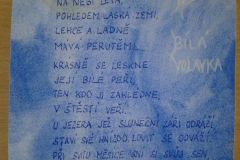 NA NEBI LÉTÁ,
POHLEDEM LÁSKÁ ZEMI,
LEHCE A LADNĚ
MÁVÁ PERUTĚMI.
KRÁSNĚ SE LESKNE
JEJÍ BÍLÉ PEŘÍ,
TEN KDO JI ZAHLÉDNE,
V ŠTĚSTÍ VĚŘÍ.
U JEZERA JEŽ SLUNEČNÍ ZÁŘI ODRÁŽÍ,
STAVÍ SVÉ HNÍZDO, LOVIT SE ODVÁŽÍ.
PŘI SVITU MĚSÍCE SNÍ SI SVŮJ SEN
BÍLÁ
VOLAVKA